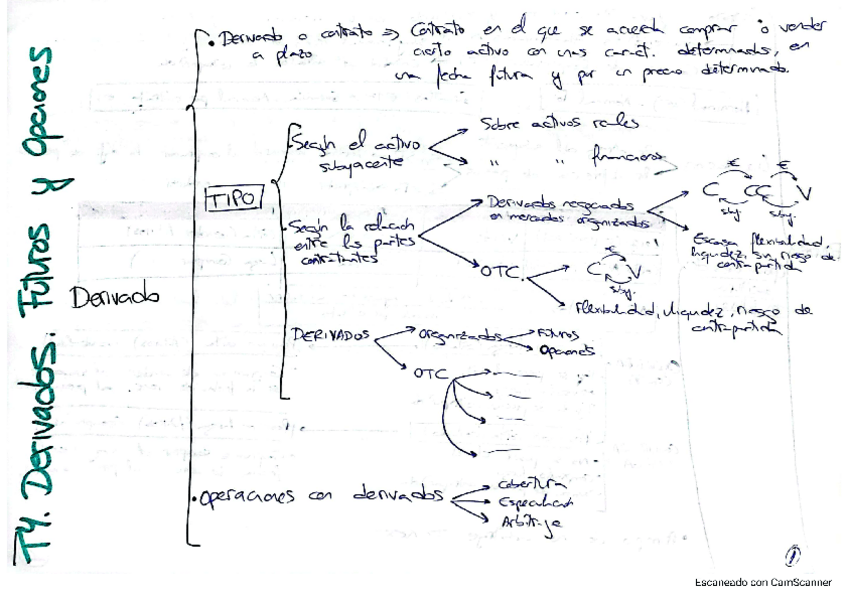 T4. Derivados. Futuros y Opciones
Derivado
• Derivado o contrato a plazo ⇒ Contrato en el que se acuerda comprar o vender
cierto activo con unas caract. determinadas, en
una fecha futura y por un precio determinado.
TIPO
Según el activo
subyacente
Sobre activos reales
" " financieros
Según la relación
entre las partes
contratantes
Derivados negociados
en mercados organizados
€ €
C CC V
sby. sby.
Escasa flexibilidad,
liquidez, sin riesgo de
contrapartida
OTC.
€
C V
sby.
Flexibilidad, iliquidez, riesgo de
contrapartida
DERIVADOS
Organizados
Futuros
Opciones
OTC
• Operaciones con derivados
Cobertura
Especulación
Arbitraje
1
Escaneado con CamScanner